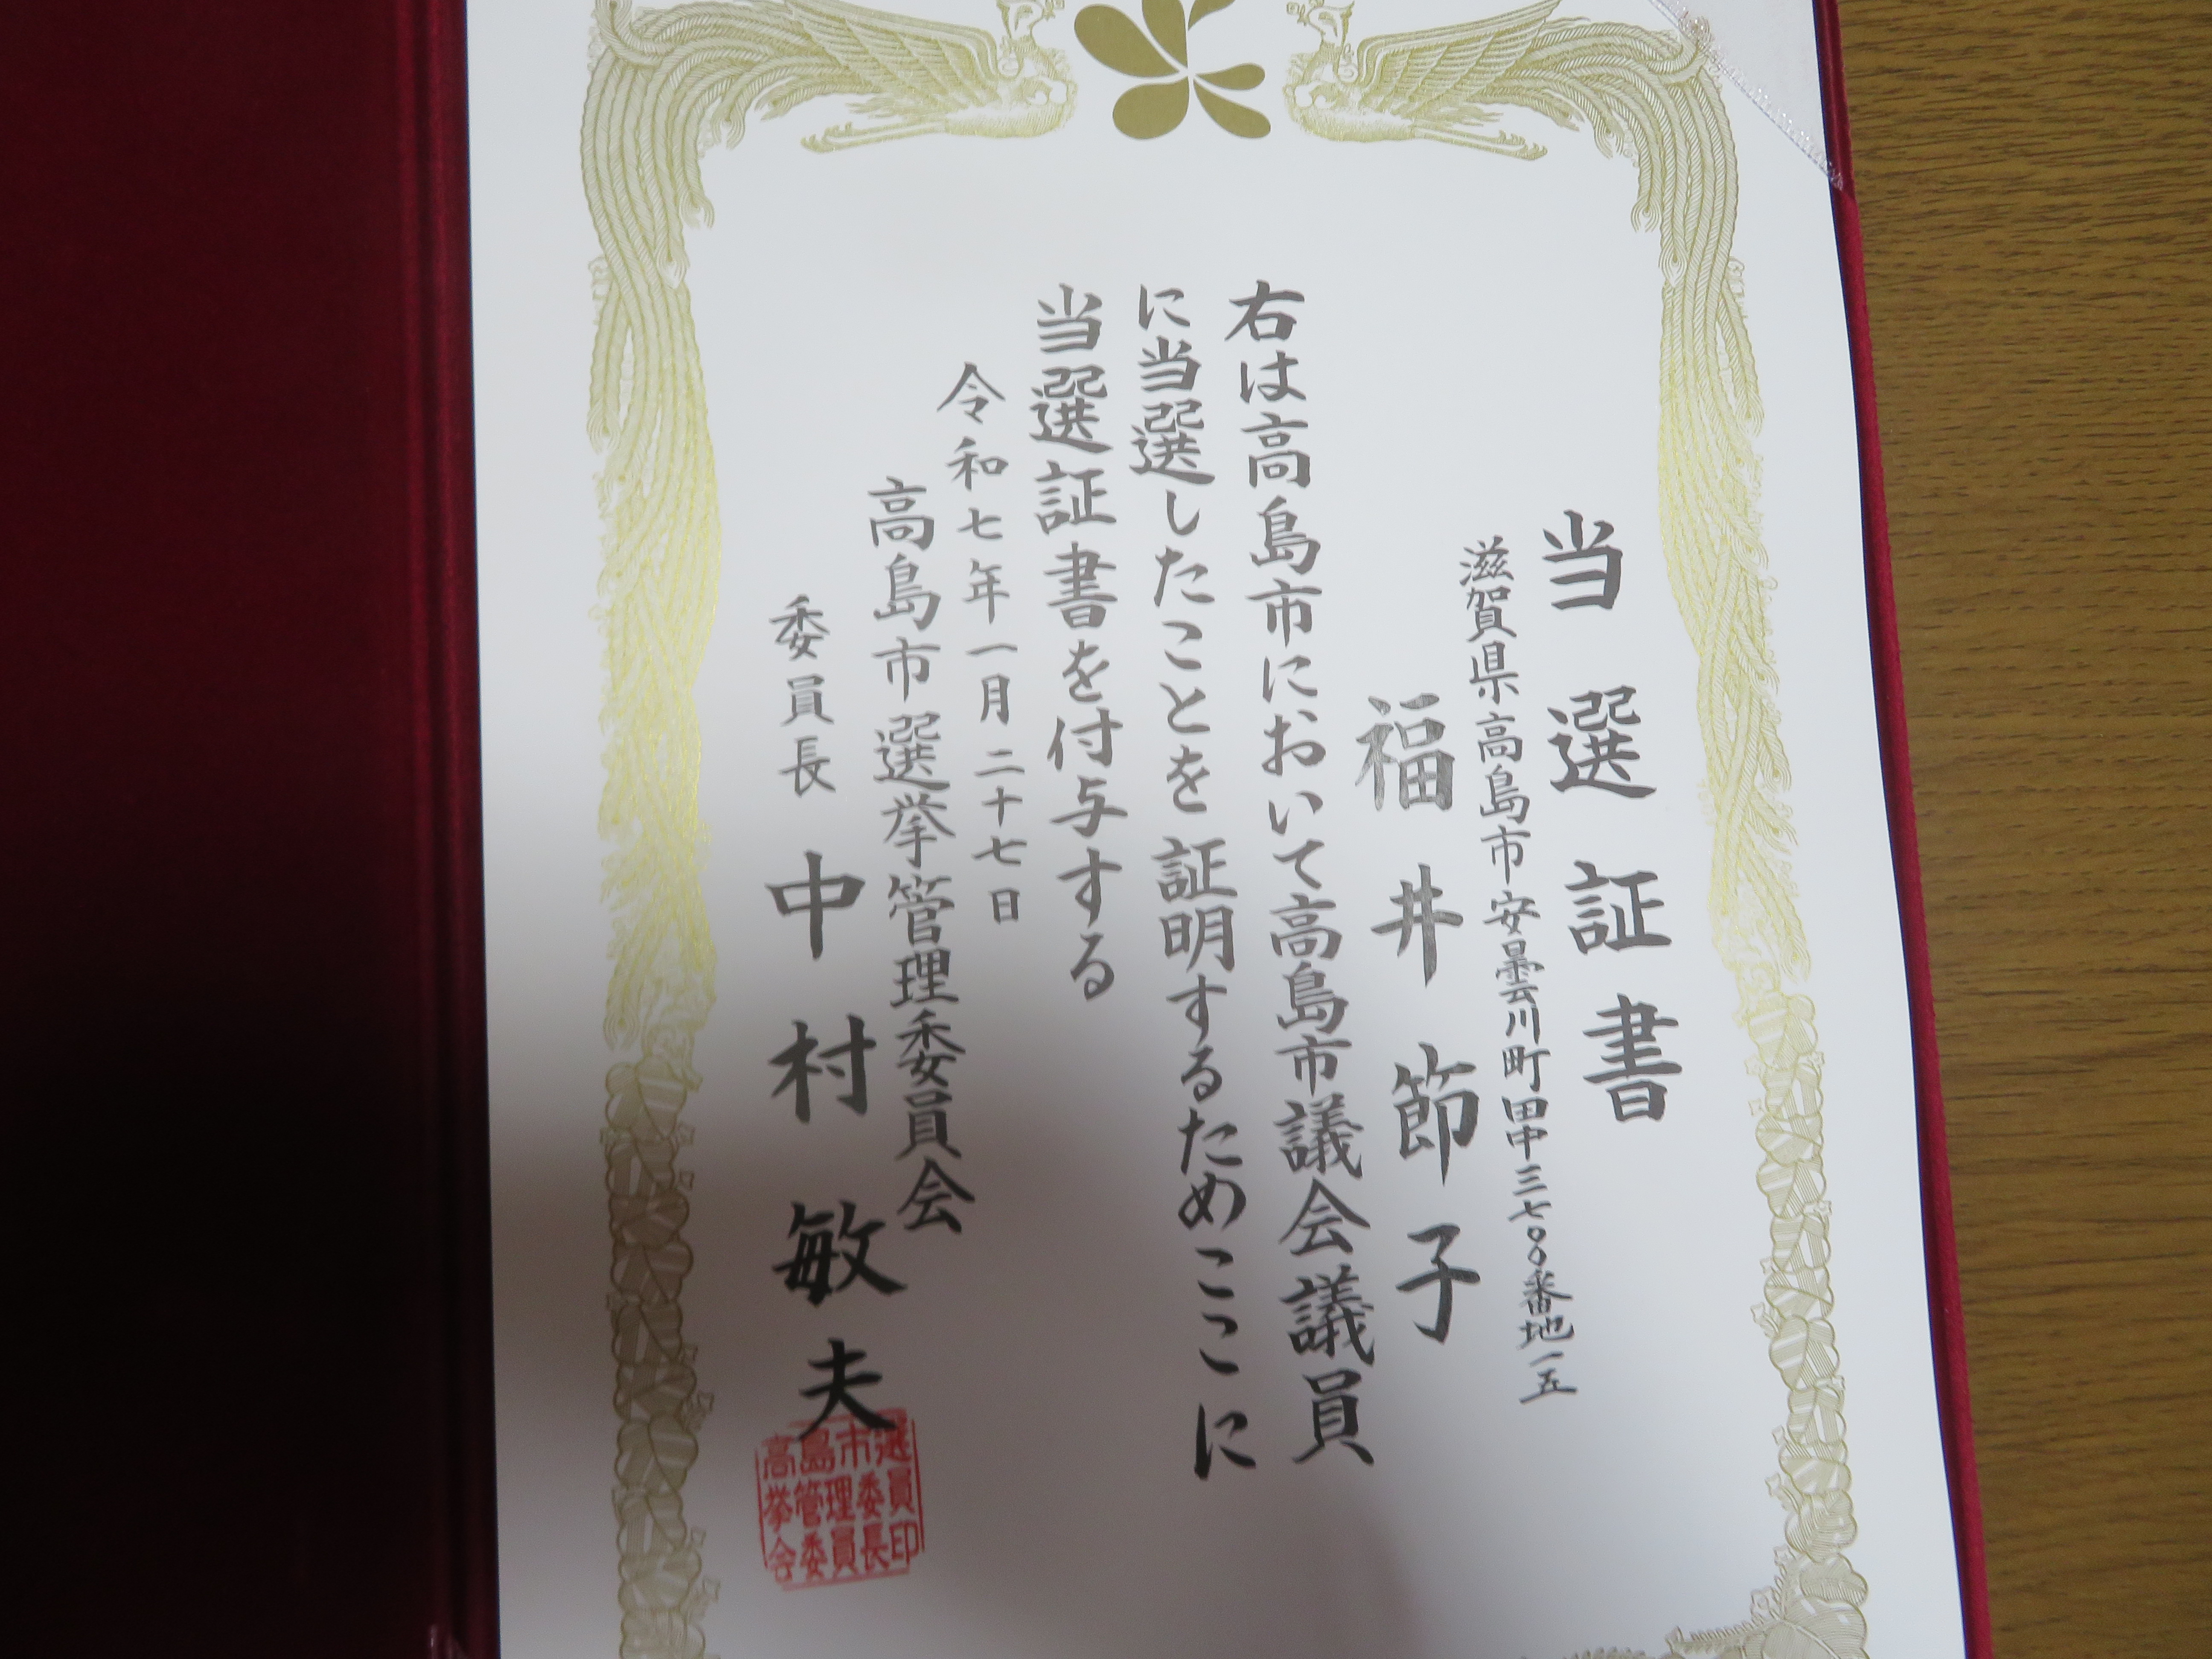 当選証書
滋賀県高島市安曇川町田中三七〇〇番地一五
福井節子
右は高島市において高島市議会議員
に当選したことを証明するためここに
当選証書を付与する
令和七年一月二十七日
高島市選挙管理委員会
委員長 中村敏夫
高島市選
挙管理委員
会委員長印